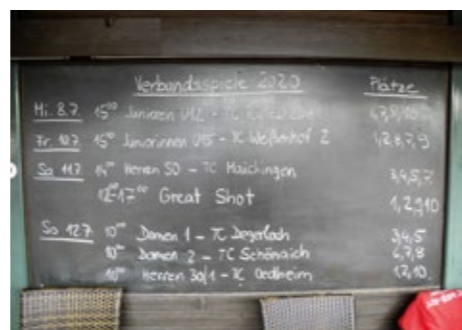 Verbandsspiele 2020 Plätze
Mi. 8.7. 15⁰⁰ Junioren U12 - TC
Fr. 10.7. 15⁰⁰ Juniorinnen U15 - TC Weißenhof 2 1,2,8,7,9
Sa 11.7. 14⁰⁰ Herren 50 - TC Maichingen 3,4,5,7
17⁰⁰ Great Shot 1,2,9,10
So 12.7. 10⁰⁰ Damen 1 - TC Degerloch 3,4,5
10⁰⁰ Damen 2 - TC Schönaich 6,7,8
10⁰⁰ Herren 30/1 - TC Oedheim 1,2,10